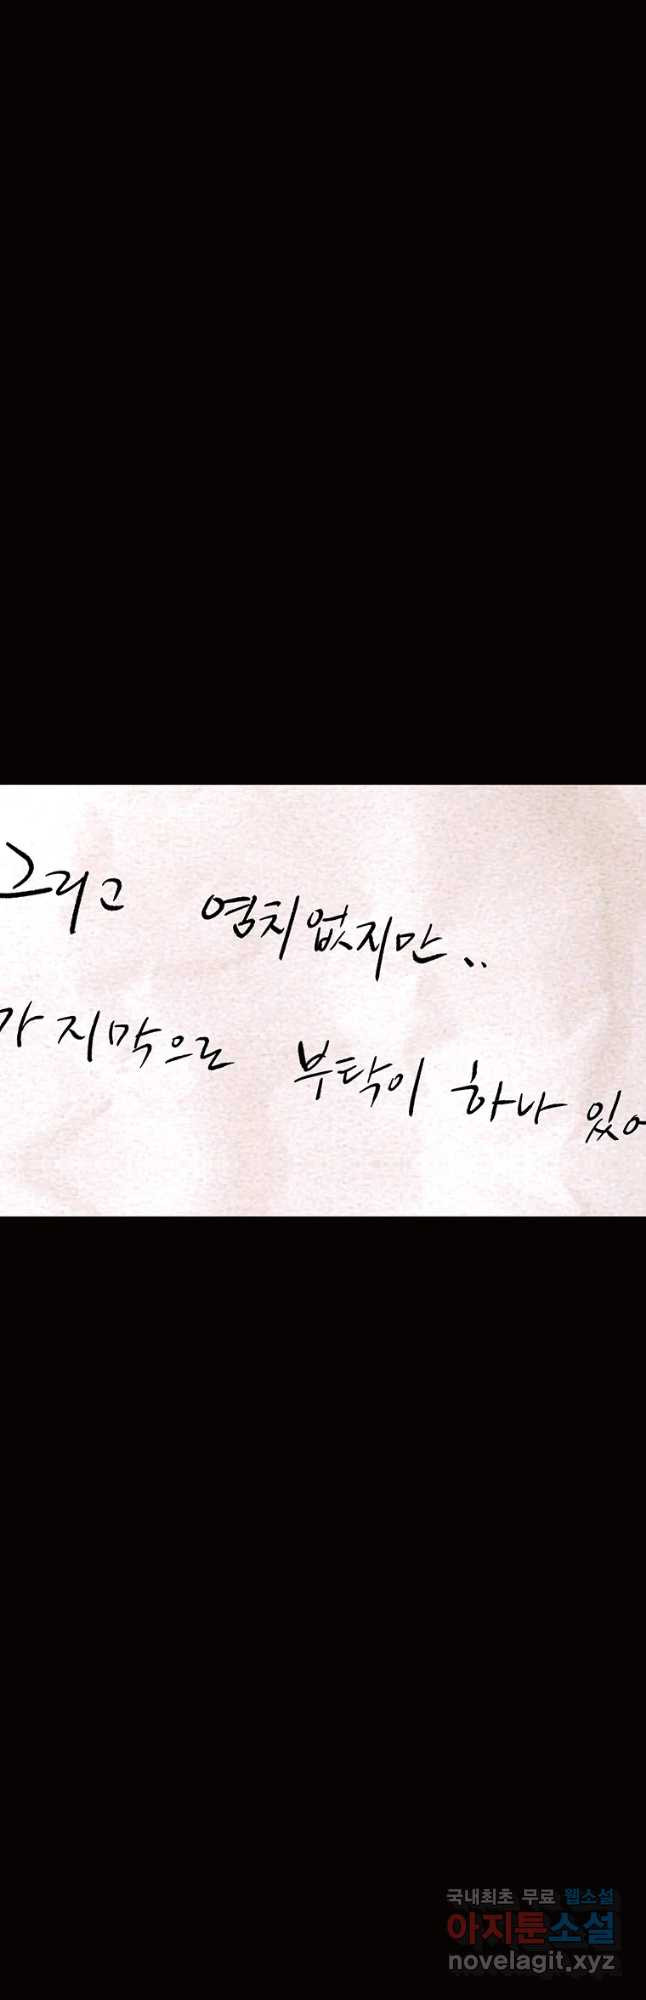 그리고 염치없지만..
마지막으로 부탁이 하나 있어
국내최초 무료 웹소설
아지툰소설
novelagit.xyz